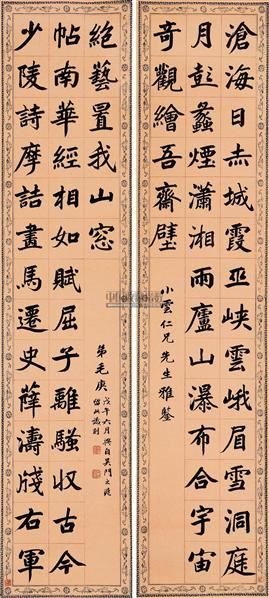 滄海日赤城霞巫峽雲峨眉雪洞庭
月彭蠡煙瀟湘雨廬山瀑布合宇宙
奇觀繪吾齋壁
小雲仁兄先生雅鑒
少陵詩摩詰畫馬遷史薛濤牋右軍
帖南華經相如賦屈子離騷収古今
絕藝置我山窓
弟毛庚
戊午六月